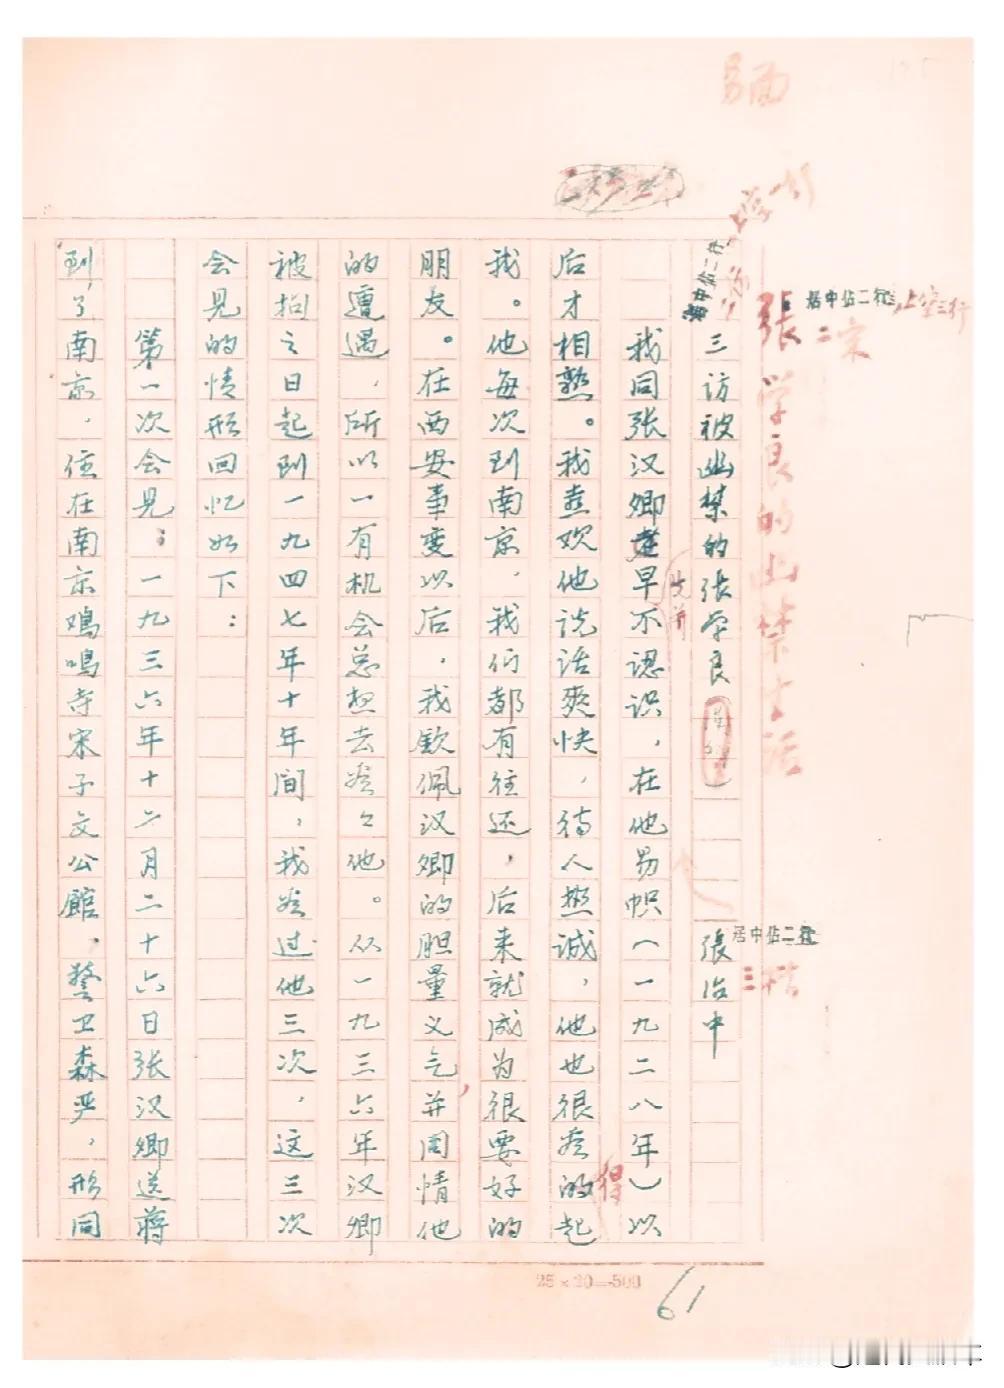 張学良的幽禁生活
居中佔二行 上空三行
二宋
居中佔二行
三访被幽禁的张学良
张治中
居中佔二行
三楷
我同张汉卿早不认识，在他易帜（一九二八年）以
后才相熟。我喜欢他说话爽快，待人热诚，他也很看的起
得
我。他每次到南京，我们都有往还，后来就成为很要好的
朋友。在西安事变以后，我钦佩汉卿的胆量义气，并同情他
的遭遇，所以一有机会总想去看看他。从一九三六年汉卿
被拘之日起到一九四七年十年间，我看过他三次，这三次
会见的情形回忆如下：
第一次会见：一九三六年十二月二十六日张汉卿送蒋
到了南京，住在南京鸡鸣寺宋子文公館，警卫森严，形同
25×20=500
61